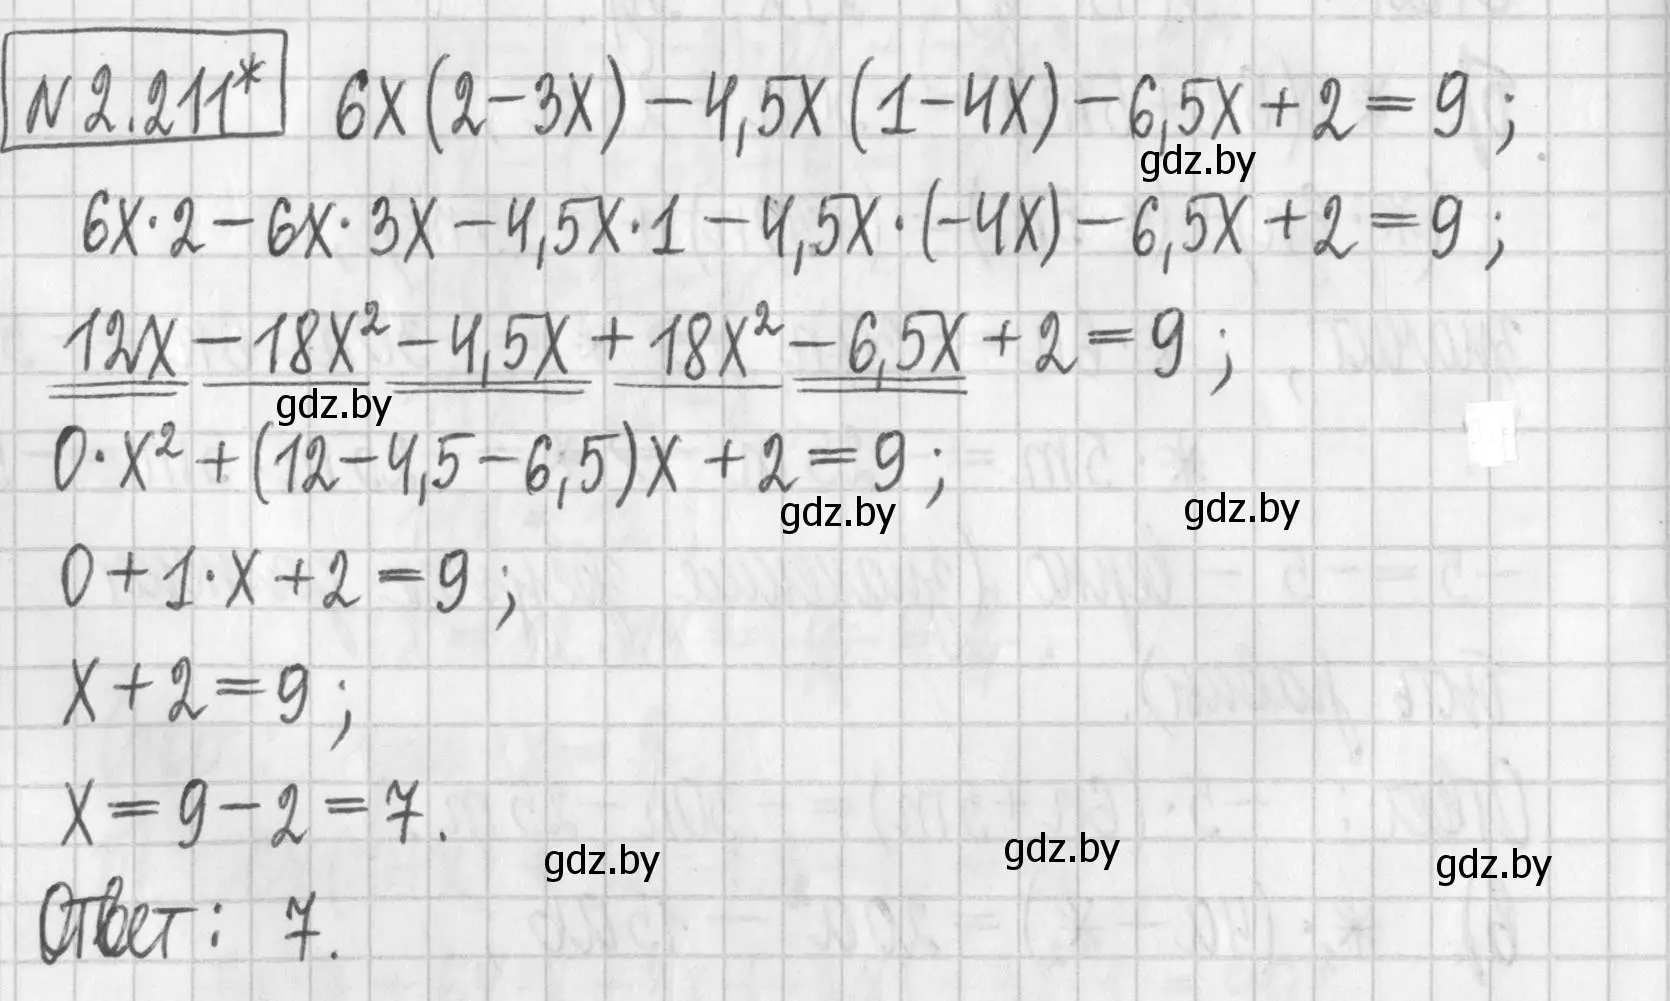 N 2.211* 6x(2-3x)-4,5x(1-4x)-6,5x+2=9;
gdz.by
6x·2-6x·3x-4,5x·1-4,5x·(-4x)-6,5x+2=9;
12x-18x²-4,5x+18x²-6,5x+2=9;
gdz.by
0·x²+(12-4,5-6,5)x+2=9;
gdz.by gdz.by
0+1·x+2=9;
x+2=9;
x=9-2=7.
gdz.by gdz.by gdz.by
Ответ: 7.